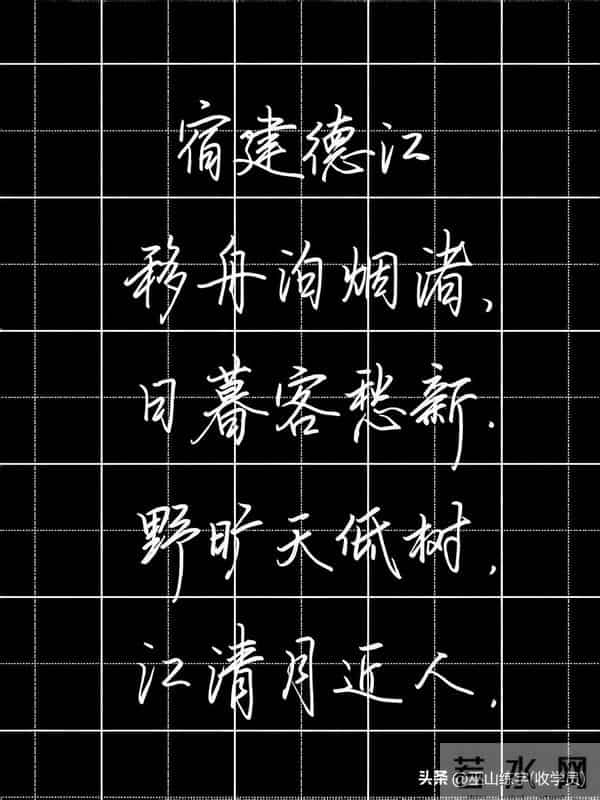 宿建德江
移舟泊烟渚、
日暮客愁新.
野旷天低树,
江清月近人.
若水网
头条 @巫山练字(收学员)